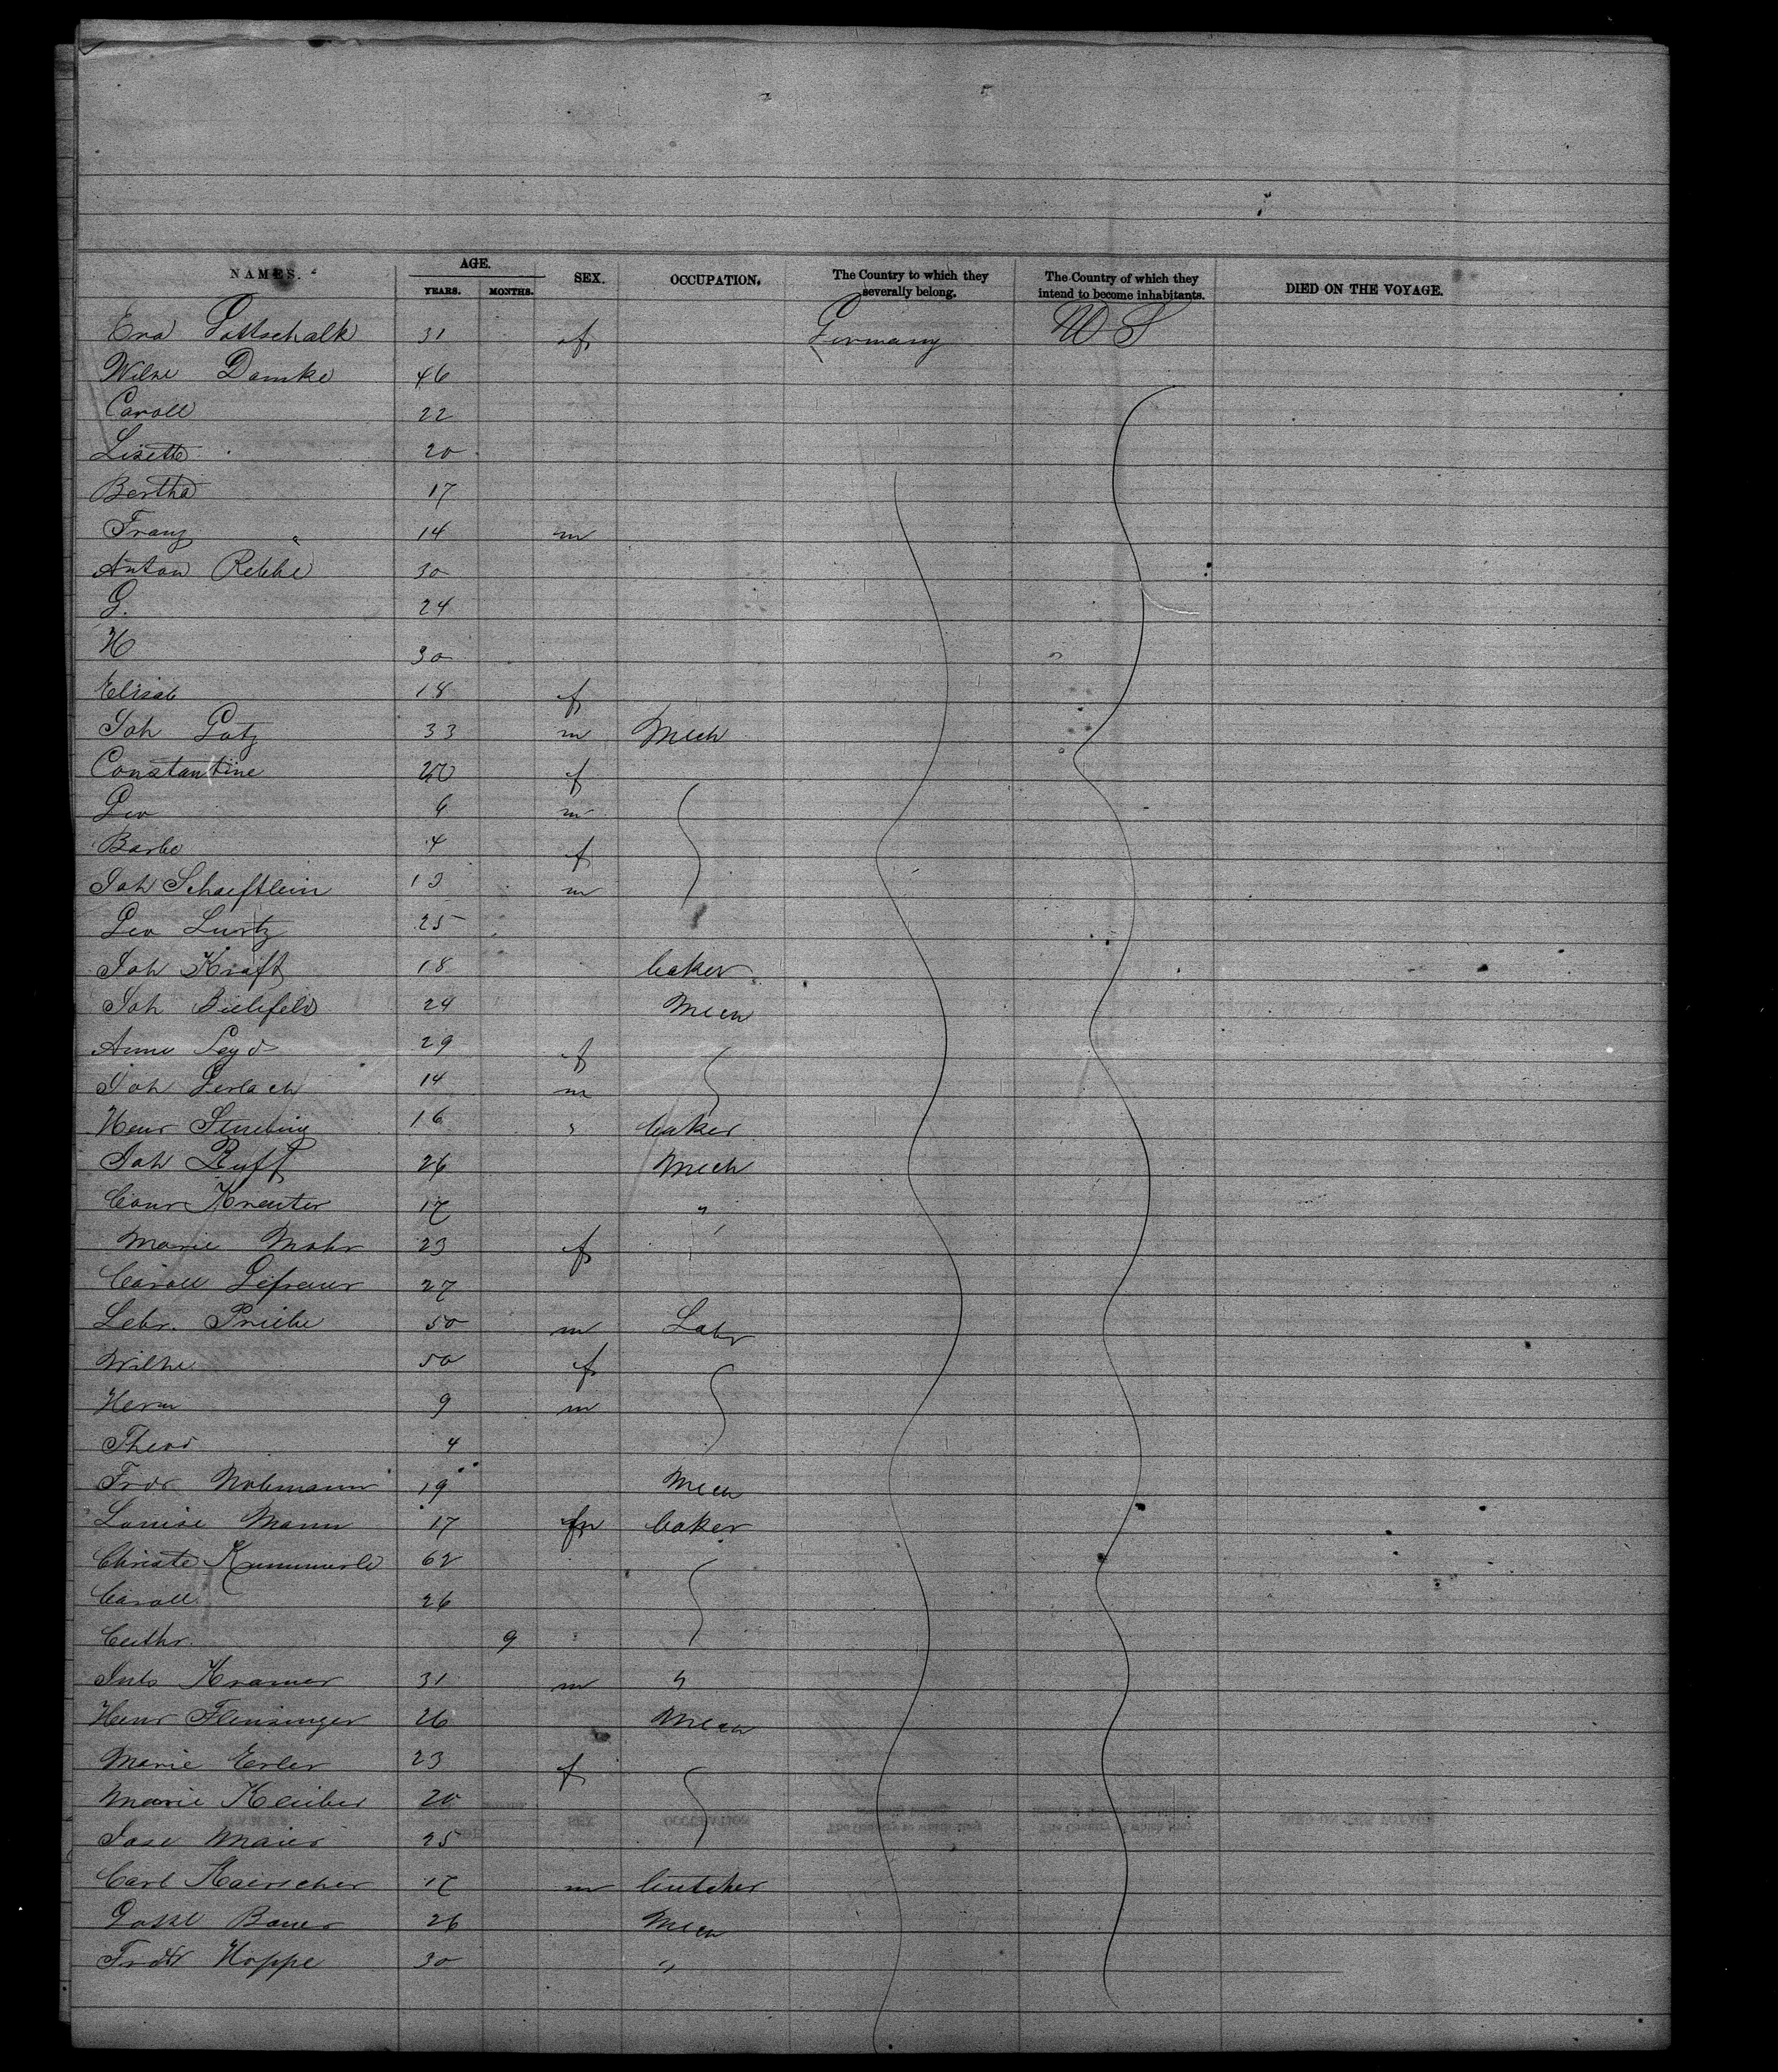 NAMES. AGE. SEX. OCCUPATION. The Country to which they severally belong. The Country of which they intend to become inhabitants. DIED ON THE VOYAGE.
YEARS. MONTHS.
Eva Gottschalk 31 f Germany U S
Wilhe Damke 46
Caroll 22
Lisette 20
Bertha 17
Franz " 14 m
Anton Rebbe 30
G. 24
H 30
Elisab 18 f
Joh Götz 33 m Mech
Constantine 20 f
Geo 6 m
Barbe 4 f
Joh Schaeftlein 13 m
Geo Lurtz 25
Joh Kraft 18 baker
Joh Bielefeld 24 Mech
Anne 29 f
Joh Gerlach 14 m
Henr Stuebing 16 " baker
Joh Buff 26 Mech
Conr Kreuter 17 "
Marie Mohr 23 f
Caroll 27
Lebr. Priebe 50 m Labr
Wilhe 50 f
Herm 9 m
Theod 4
Frdr 19 Mech
Louise Mann 17 baker
Christe Kummerle 62
Caroll 26
Cathr. 9
Juls Kramer 31 m "
Henr Flensinger 26 Mech
Marie Erler 23 f
Marie Kleiber 20
Jose Maier 25
Carl 17 m butcher
Bauer 26 Mech
Frdr Hoppe 30 "